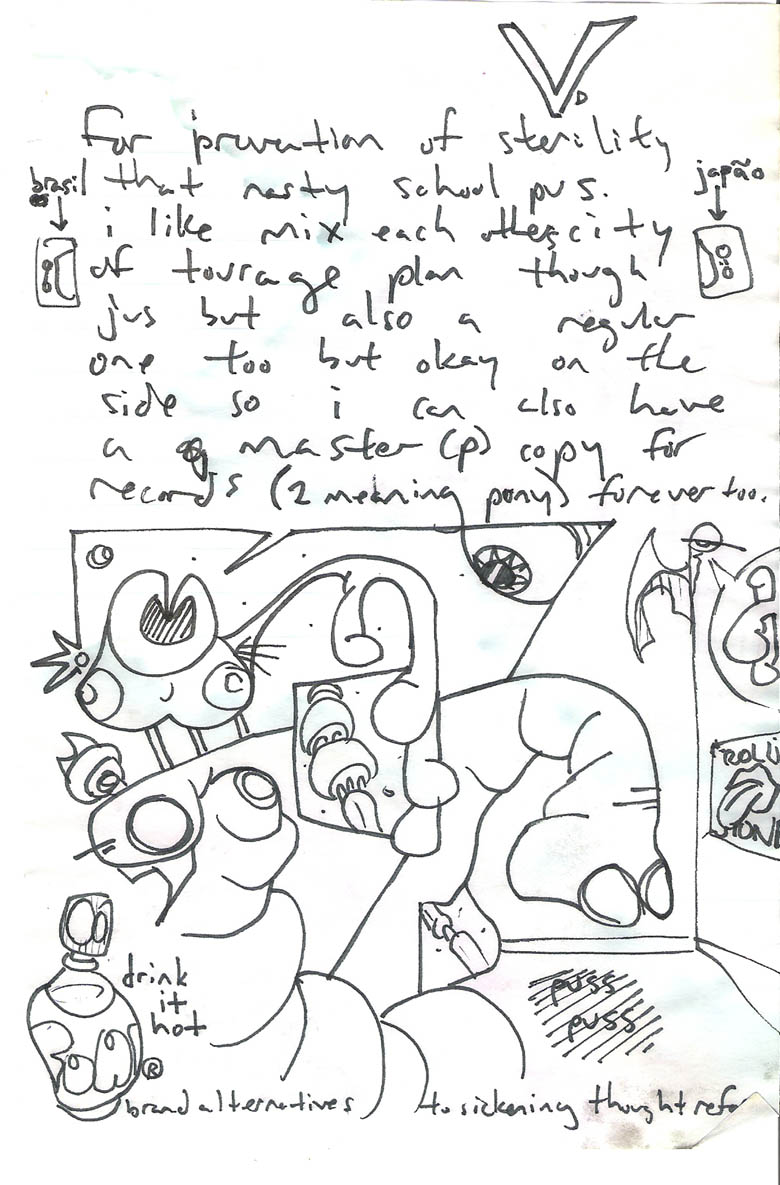 V
D
For prevention of sterility
that nasty school pus.
brasil
japão
i like mix each others city
of tourage plan though
jus but also a regular
one too but okay on the
side so i can also have
a master (p) copy for
records (2 meaning pony) forever too.
ROLLI
STONE
drink
it
hot
®
puss
puss
brand alternatives to sickening thought refo